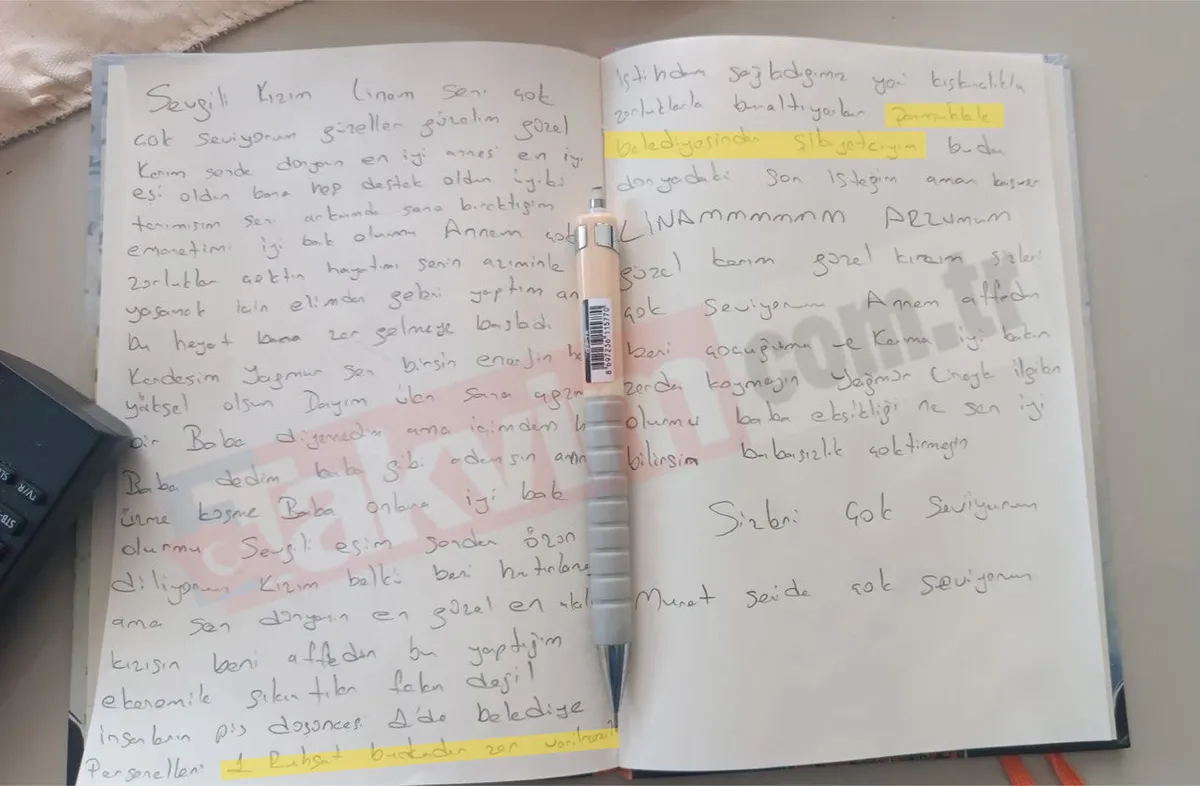 Sevgili kızım Linam seni çok
çok seviyorum güzeller güzelim güzel
Karım sende dünyanın en iyi annesi en iyi
eşi oldun bana hep destek oldun iyiki
tanımışım seni arkamda sana bıraktığım
emanetimi iyi bak olurmu Annem çok
zorluklar çektin hayatımı senin azminle
yaşamak için elimden geleni yaptım
bu hayat bana zor gelmeye başladı
Kardeşim Yağmur sen birsin enerjin
yüksel olsun Dayım ölen sana
bir Baba diyemedim ama içimden
Baba dedim baba gibi adamsın
üzme Baba onlara iyi bak
olurmu Sevgili eşim senden özür
diliyorum Kızım belki beni
ama sen dünyanın en güzel en
kızısın beni affedin bu yaptığım
ekonomik sıkıntıdan falan değil
insanların pis düşüncesi 2'de belediye
Personelleri 1 Ruhsat bukadar zor
İstihdam sağladığımız yeri kıskançlıkla
zorluklarla bunaltıyorlar Pamukkale
belediyesinden Şikayetçiyim buda
dünyadaki son isteğim aman
LINAMMMMMMM ARZUMUM
güzel karım güzel kızım sizleri
çok seviyorum Annem affedin
beni çocuğuma ve Karıma iyi bakın
zorda koymayın Yağmur ilgilen
olurmu baba eksikliği ne sen iyi
bilirsin babasızlık çektirmeyin
Sizleri Çok Seviyorum
Murat seide çok seviyorum
takvim.com.tr
8697236115770
TV/R
STB